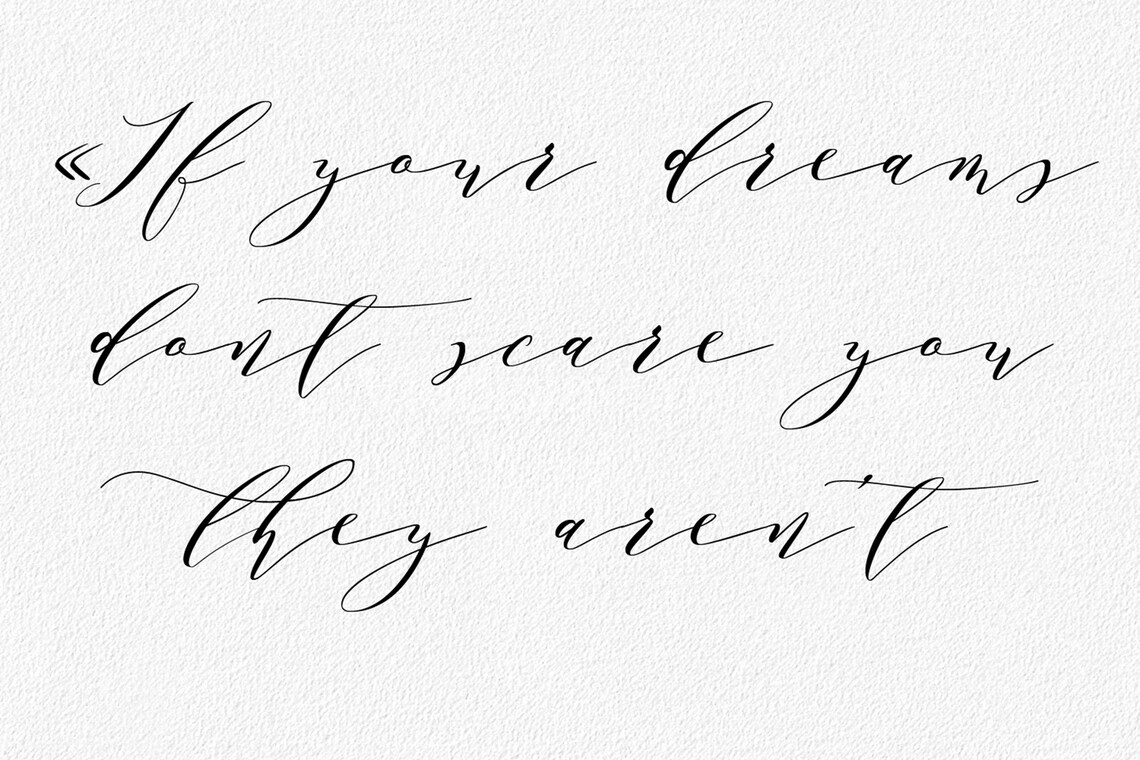 «If your dreams
dont scare you
they aren't